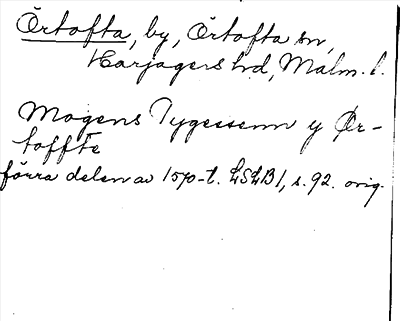 Örtofta, by, Örtofta sn,
Harjagers hd, Malm. l.
Mogens Tygessenn y Ør-
toffte
förra delen av 1570-t. LSLB1, s. 92. orig.